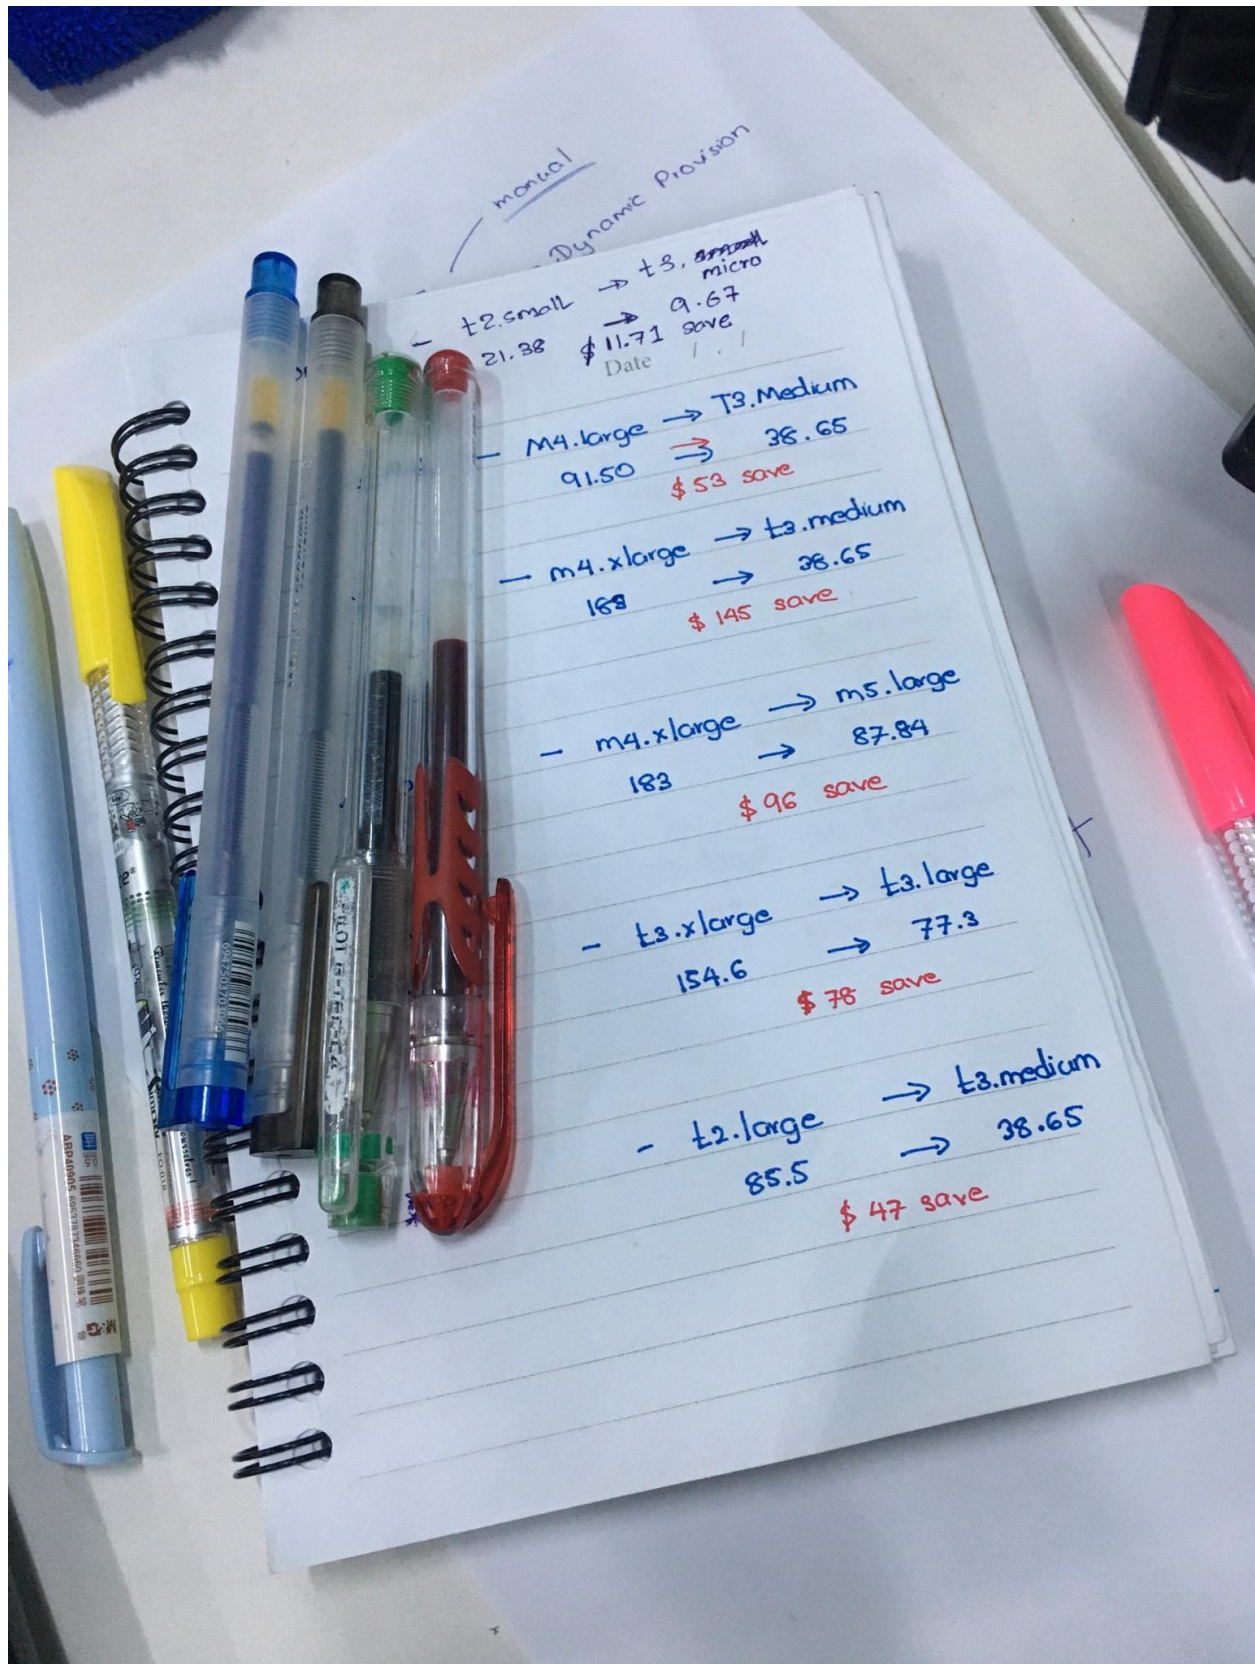 manual
Dynamic Provision
- t2.small → t3. micro
21.38 → 9.67
$ 11.71 save
Date / . /
- M4.large → T3.Medium
91.50 → 38.65
$ 53 save
- m4.xlarge → t3.medium
183 → 38.65
$ 145 save
- m4.xlarge → m5.large
183 → 87.84
$ 96 save
- t3.xlarge → t3.large
154.6 → 77.3
$ 78 save
- t2.large → t3.medium
85.5 → 38.65
$ 47 save
M&G